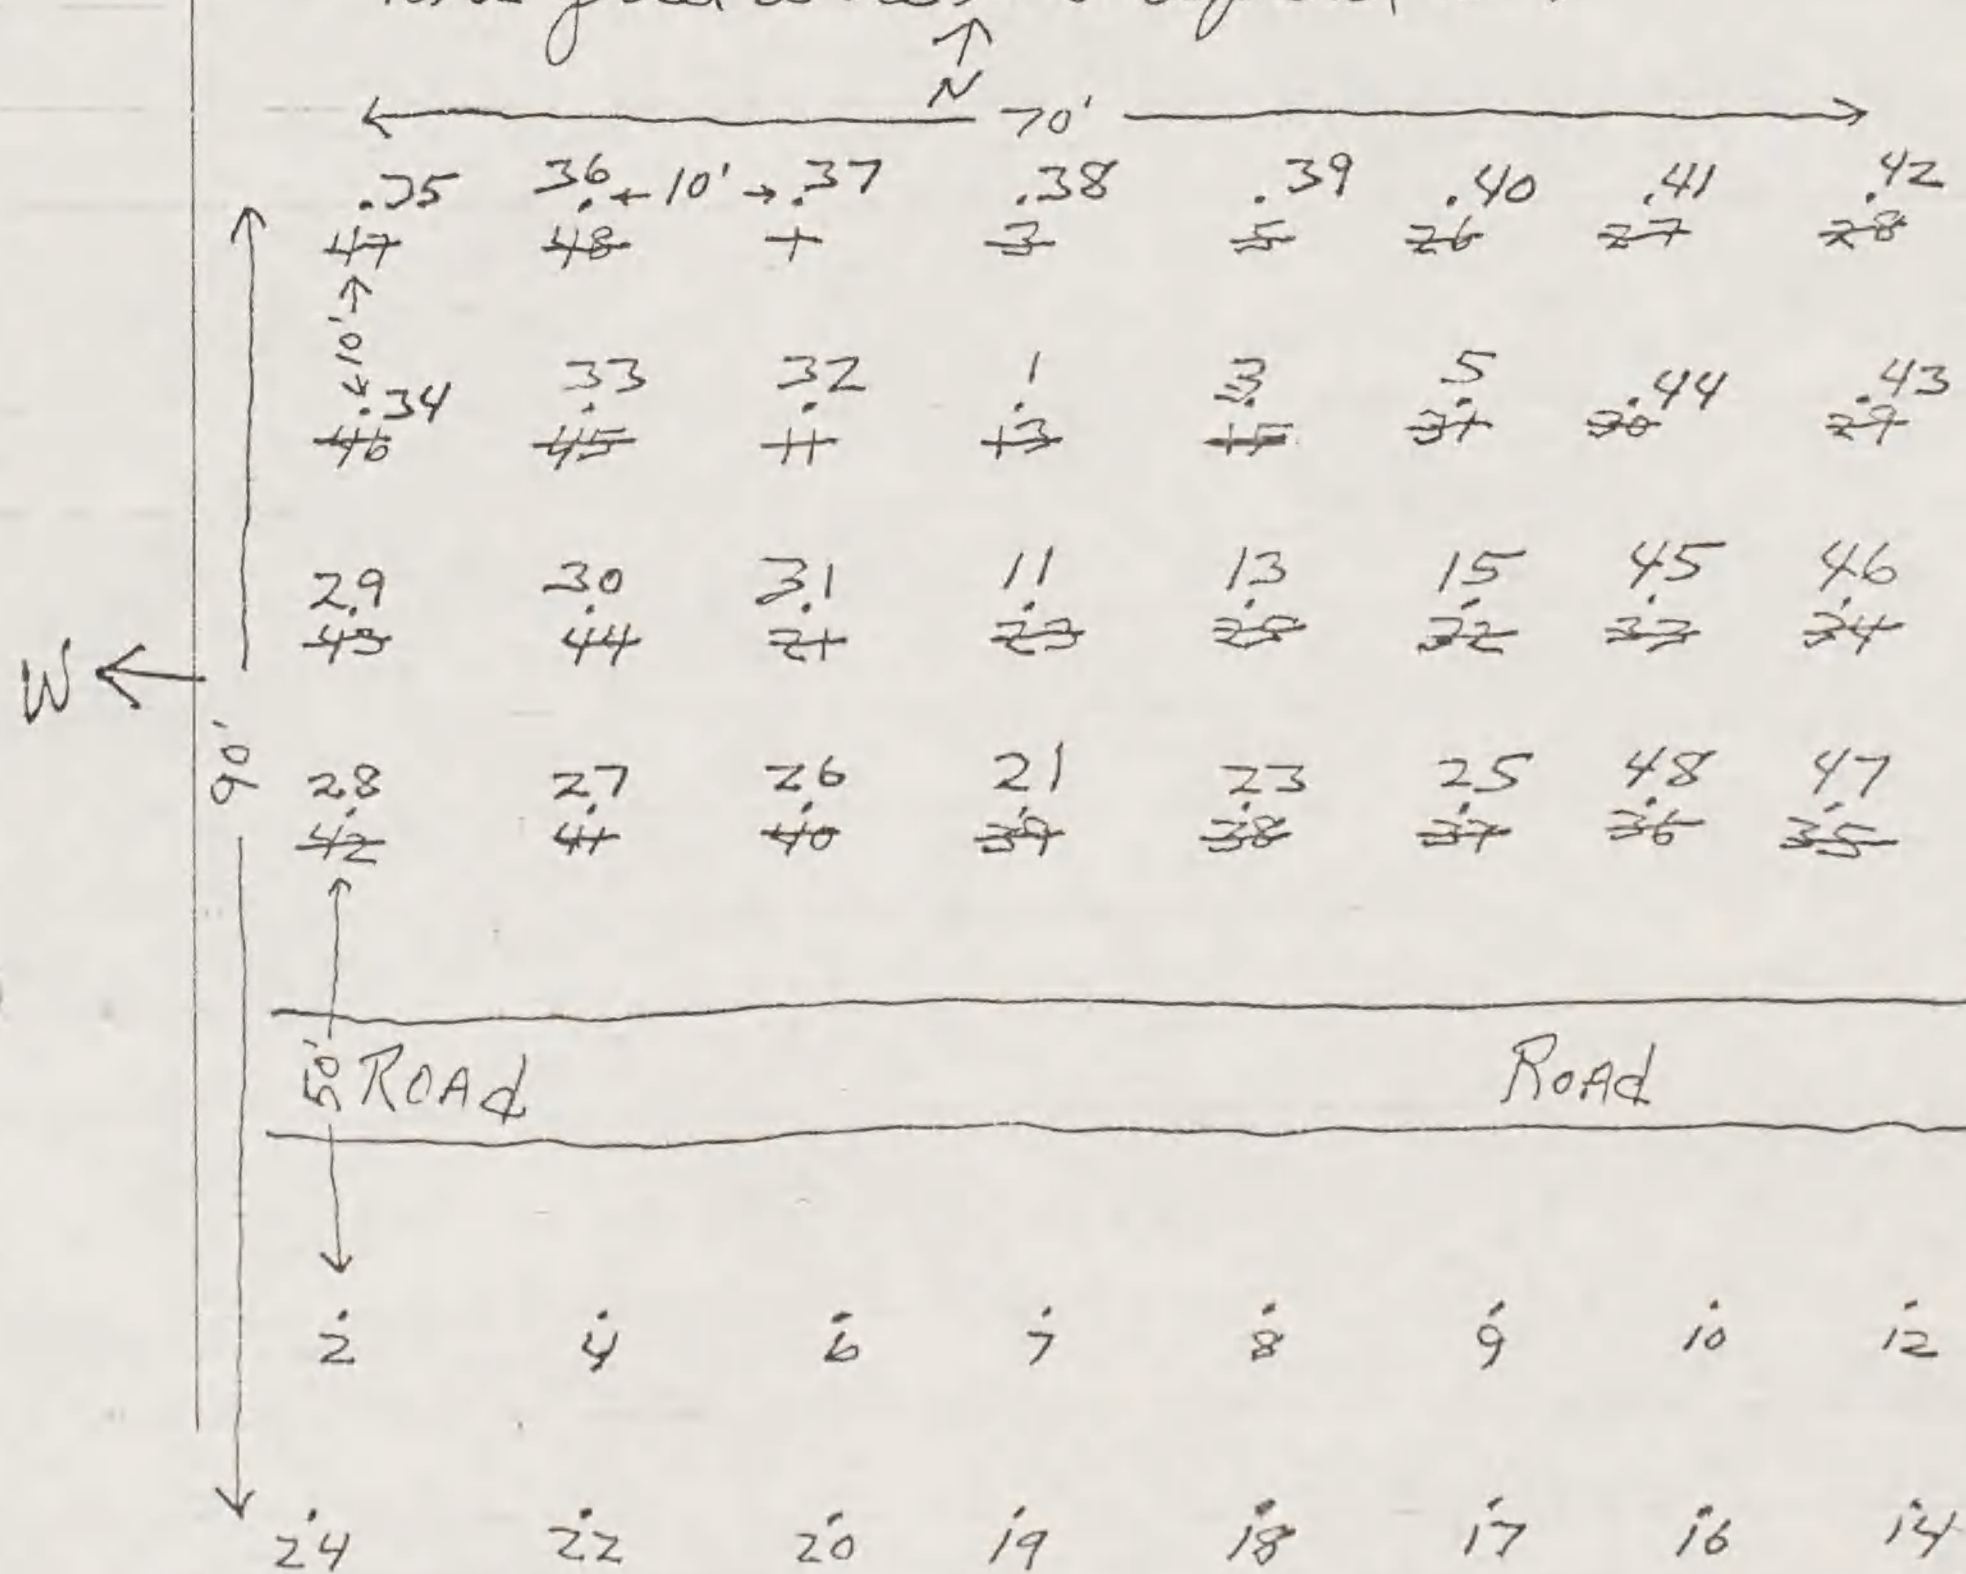 N
70'
.35 36 ←10'→ .37 .38 .39 .40 .41 .42
47 48 1 3 5 26 27 28
10'
.34 33 32 1 3 5 .44 .43
46 45 11 13 15 31 30 29
29 30 31 11 13 15 45 46
43 44 21 23 25 32 33 34
W
90'
28 27 26 21 23 25 48 47
42 41 40 39 38 37 36 35
50' ROAd ROAd
2 4 6 7 8 9 10 12
24 22 20 19 18 17 16 14